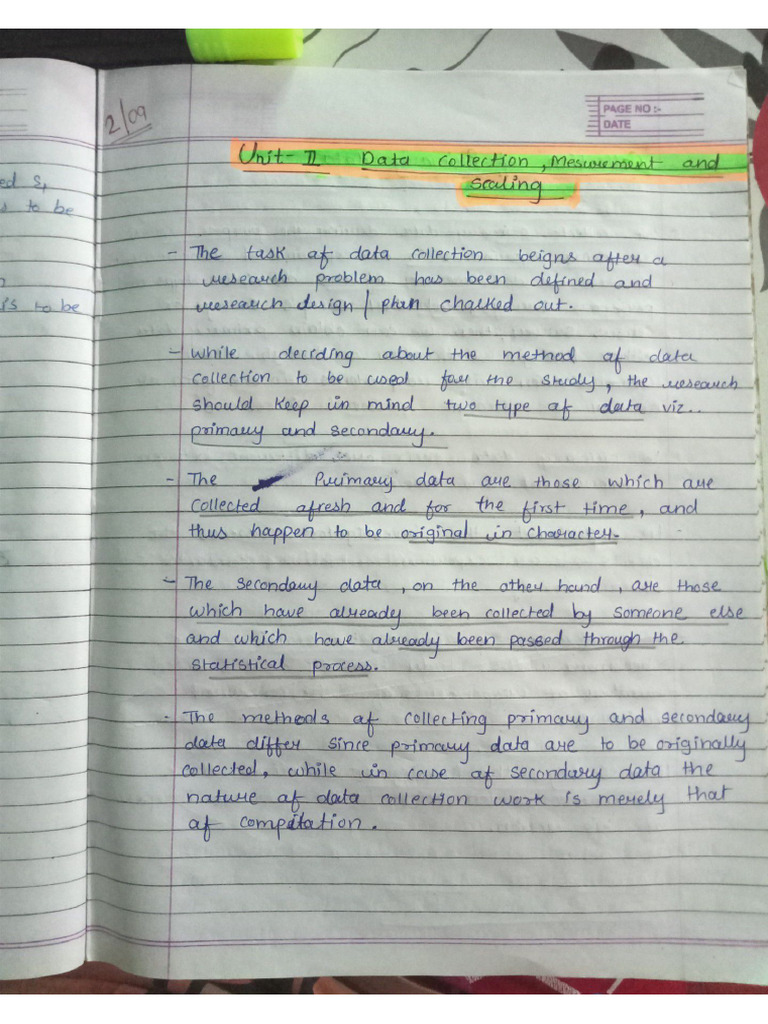 ed S,
s to be
is to be
2/09
PAGE NO :-
DATE
Unit- II Data Collection, Mesurement and
Scaling
- The task of data collection beigns after a
research problem has been defined and
research design / plan chalked out.
- While deciding about the method of data
collection to be used for the study, the research
should keep in mind two type of data viz..
primary and secondary.
- The Primary data are those which are
collected afresh and for the first time, and
thus happen to be original in character.
- The secondary data, on the other hand, are those
which have already been collected by someone else
and which have already been passed through the
statistical process.
- The methods of collecting primary and secondary
data differ since primary data are to be originally
collected, while in case of secondary data the
nature of data collection work is merely that
of compilation.